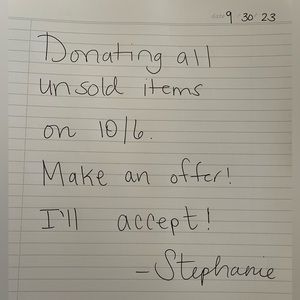 date 9 30 23
Donating all
unsold items
on 10/6.
Make an offer!
I'll accept!
- Stephanie